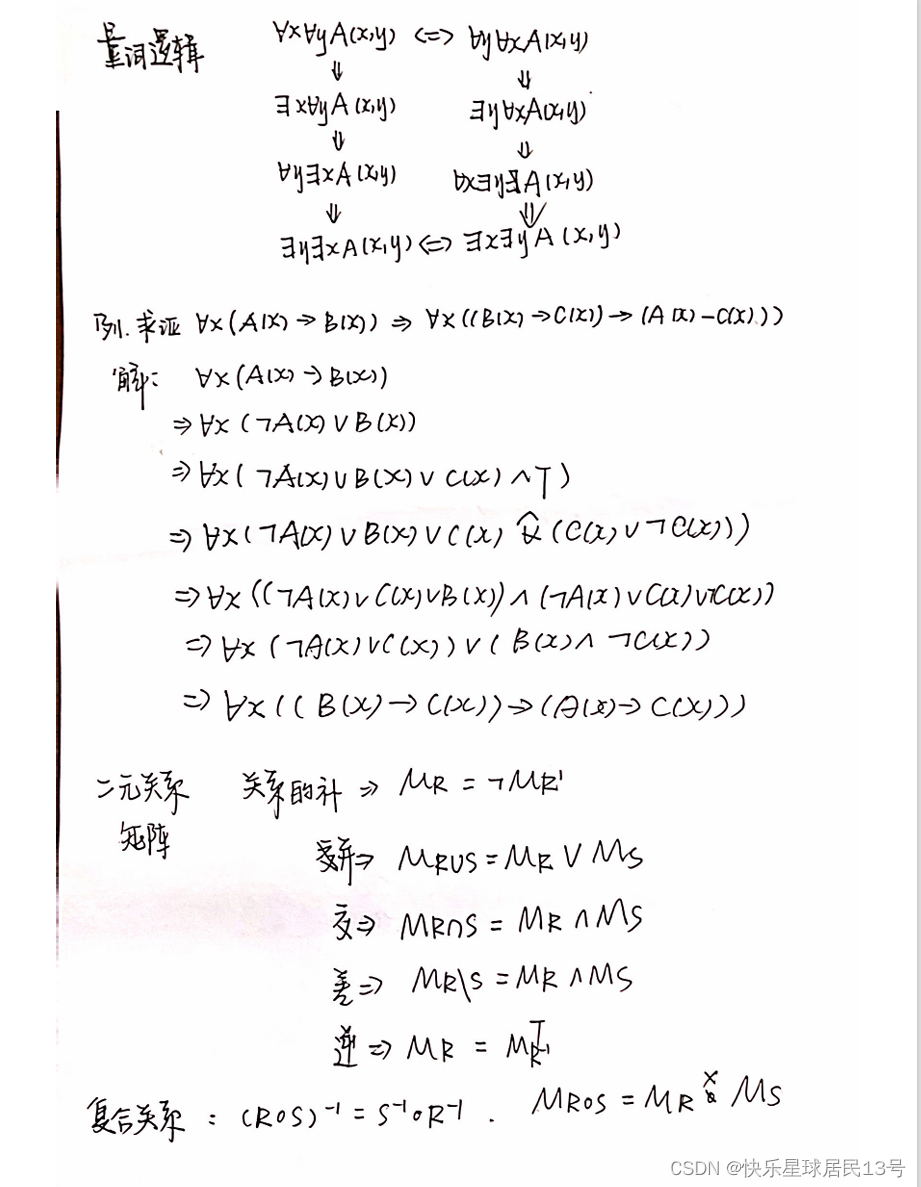 量词逻辑 ∀x∀yA(x,y) <=> ∀y∀xA(x,y)
⇓ ⇓
∃x∀yA(x,y) ∃y∀xA(x,y)
⇓ ⇓
∀y∃xA(x,y) ∀x∃yA(x,y)
⇓ ⇓
∃y∃xA(x,y) <=> ∃x∃yA(x,y)
例.求证 ∀x(A(x)→B(x)) ⇒ ∀x((B(x)→C(x))→(A(x)-C(x)))
解: ∀x(A(x)→B(x))
⇒∀x(¬A(x)∨B(x))
⇒∀x(¬A(x)∪B(x)∨C(x)∧T)
⇒∀x(¬A(x)∨B(x)∨C(x)∧(C(x)∨¬C(x)))
⇒∀x((¬A(x)∨C(x)∨B(x))∧(¬A(x)∨C(x)∨¬C(x)))
⇒∀x(¬A(x)∨C(x))∨(B(x)∧¬C(x))
⇒∀x((B(x)→C(x))→(A(x)→C(x)))
二元关系 关系的补⇒ MR=¬MR'
矩阵
并⇒ MR∪S=MR∨MS
交⇒ MR∩S=MR∧MS
差⇒ MR\S=MR∧MS
逆⇒ MR=MR⁻¹ᵀ
复合关系:(R∘S)⁻¹=S⁻¹∘R⁻¹. MR∘S=MR×MS
CSDN @快乐星球居民13号